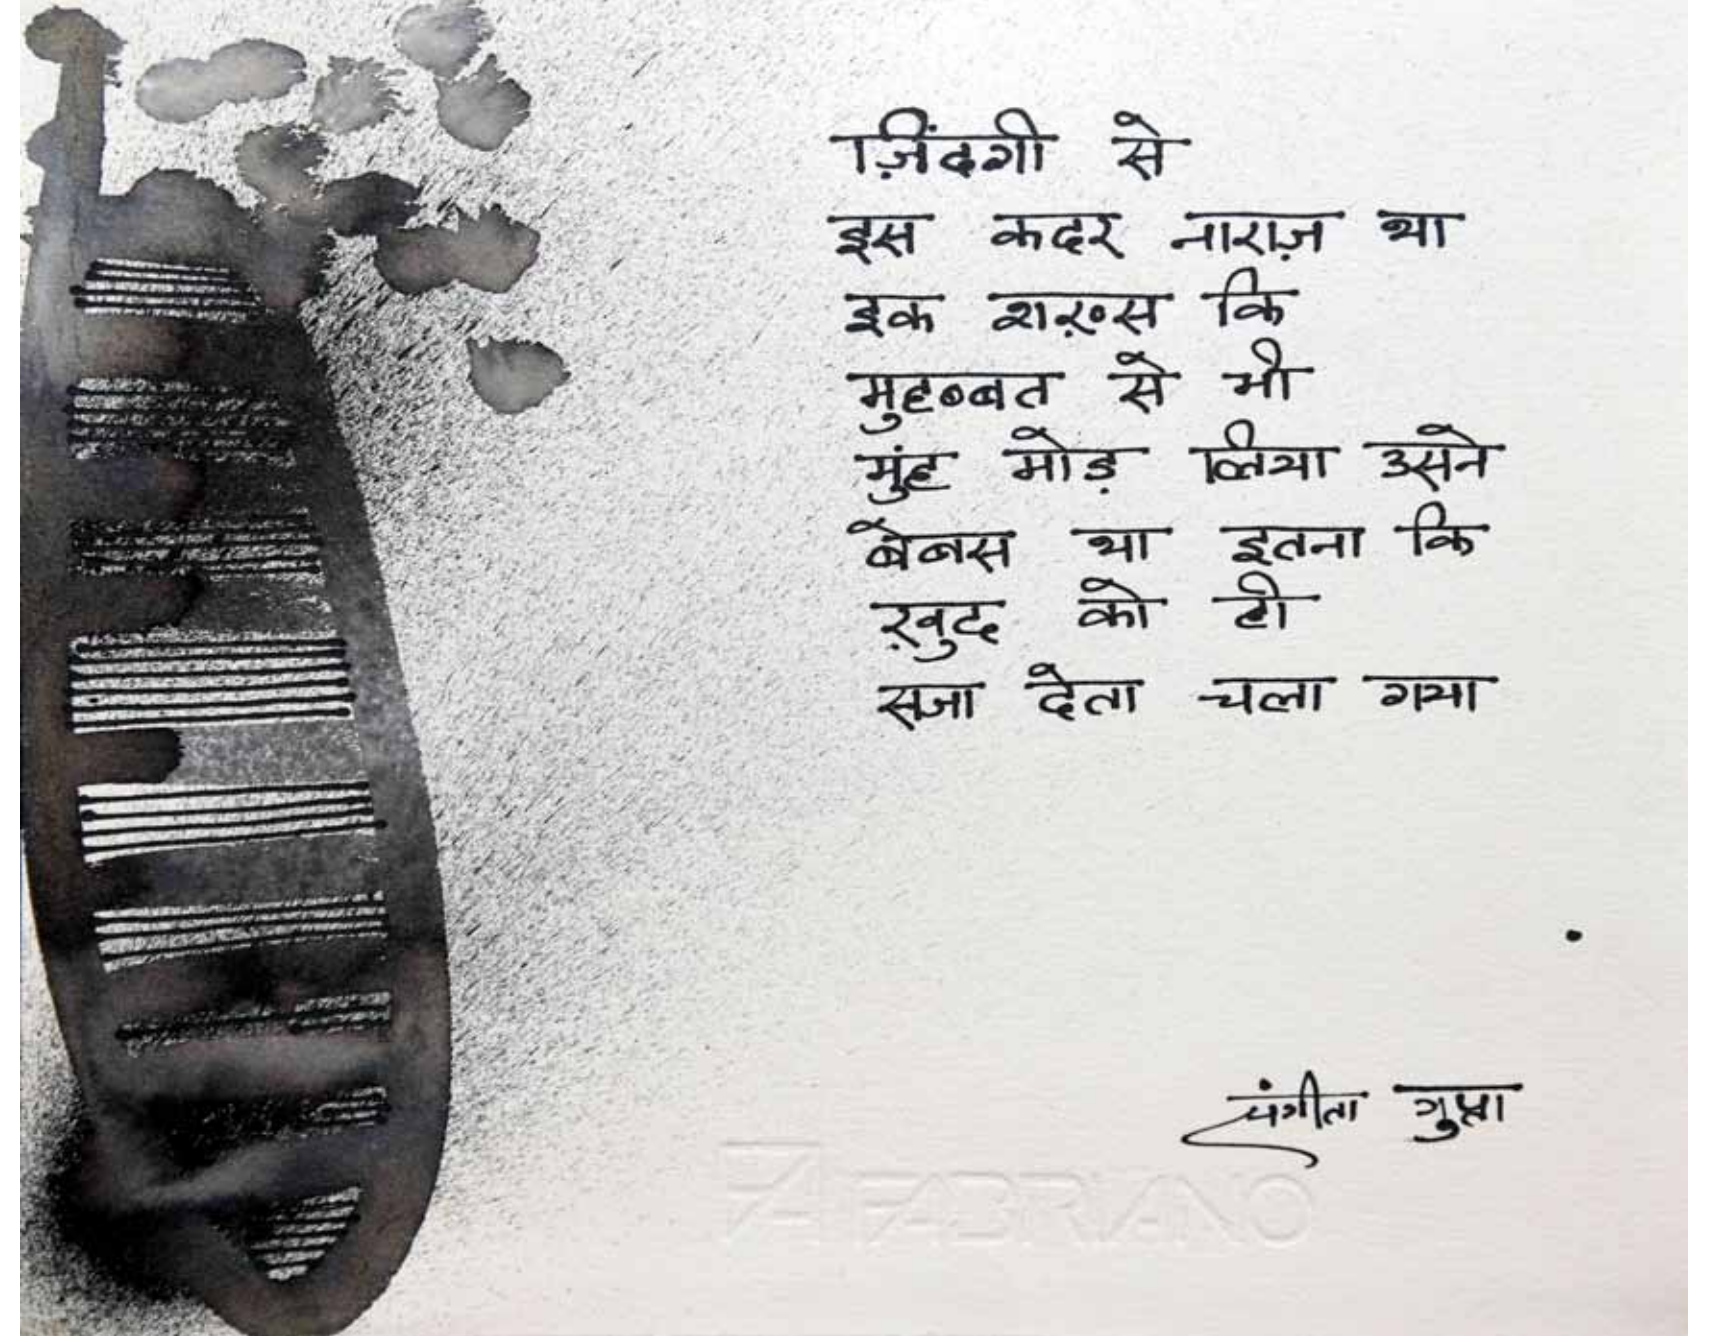 ज़िंदगी से
इस कदर नाराज़ था
इक शख़्स कि
मुहब्बत से भी
मुंह मोड़ लिया उसने
बेबस था इतना कि
ख़ुद को ही
सजा देता चला गया
संगीता गुप्ता
FABRIANO